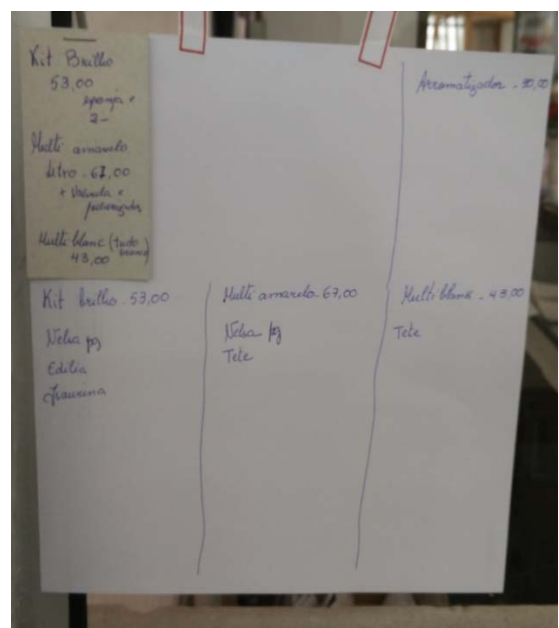 Kit Brilho
53,00
esponja +
2-
Multi amarelo
Litro - 67,00
+ Válvula e
pulverizador
Multi blanc (tudo branco)
43,00
Arromatizador - 30,00
Kit brilho - 53,00
Nelsa pg
Edilia
Isaurina
Multi amarelo - 67,00
Nelsa pg
Tete
Multi blanc - 43,00
Tete